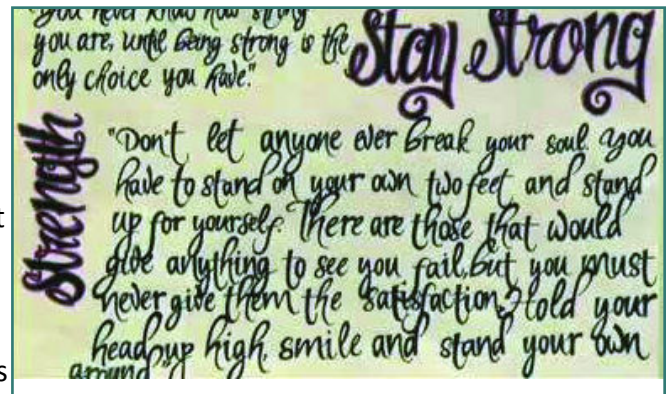 "you never know how strong
you are, until being strong is the
only choice you have."
Stay Strong
Strength
"Don't let anyone ever break your soul. you
have to stand on your own two feet and stand
up for yourself. There are those that would
give anything to see you fail, but you must
never give them the satisfaction. Hold your
head up high, smile and stand your own
ground"
t
s